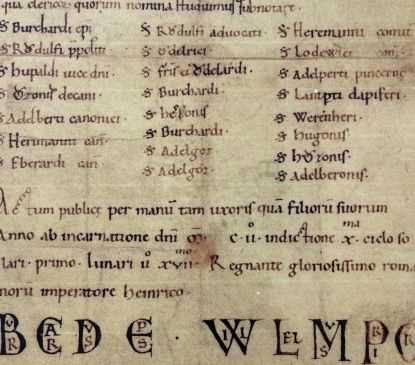 qua clericor quorum nomina studuimus subnotare.
S Burchardi epi
S Rodulfi ppositi
S hupaldi vice dni.
S Ottonis decani.
S Adelberti canonici
S Herimanni can.
S Eberardi can
S Rodulfi advocati.
S Odelrici.
S fris ei Odelardi.
S Burchardi.
S hettonis.
S Burchardi.
S Adelgoz.
S Adelgoz.
S Heremanni comit
S Lodewici com.
S Adelperti pincerne
S Lantpti dapiferi.
S Werinheri.
S Hugonis.
S hottonis.
S Adelberonis.
Actum publice per manu tam uxoris qua filioru suorum
Anno ab incarnatione dni c. ii. indictione x. ciclo so
lari. primo. lunari u xvii. Regnante gloriosissimo roma
noru imperatore heinrico.